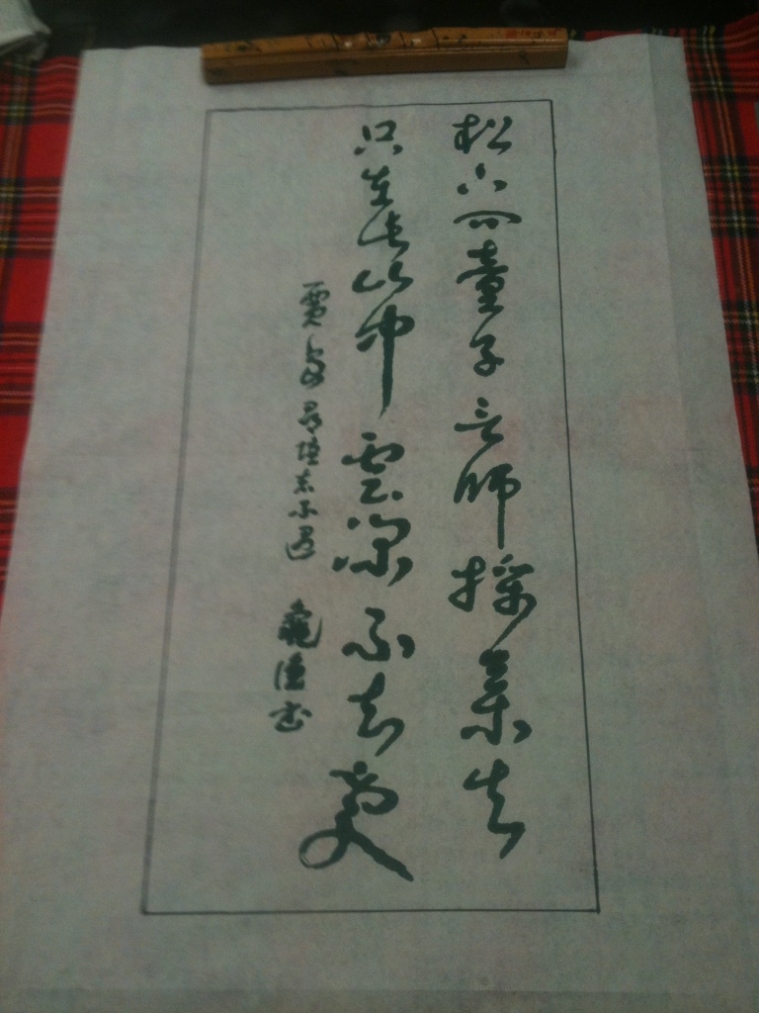 松下問童子言師採藥去
只在此山中雲深不知處
賈島尋隱者不遇 龜漁書